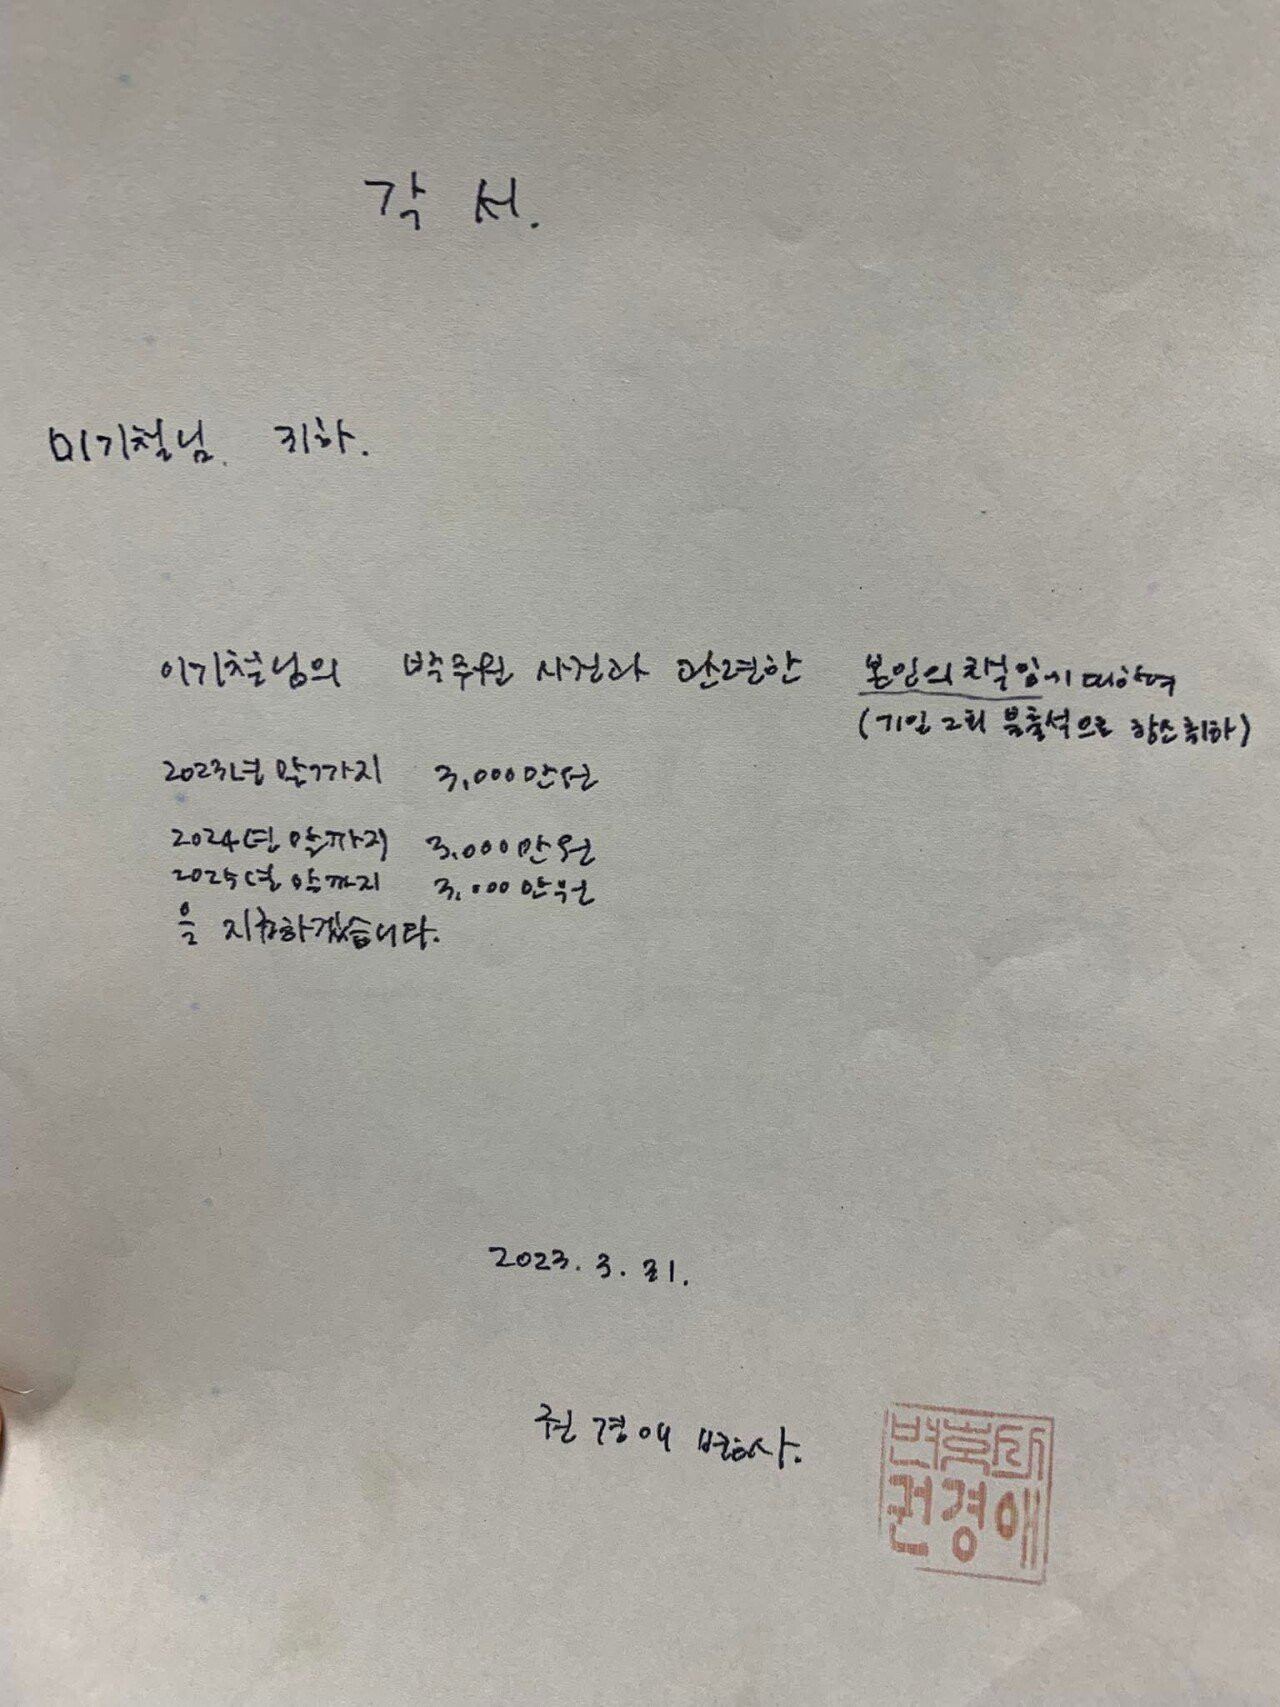 각 서.
이기철님. 귀하.
이기철님의 박주원 사건과 관련한 본인의 책임에 대하여
(기일 2회 불출석으로 항소취하)
2023년 말까지 3,000만원
2024년 말까지 3,000만원
2025년 말까지 3,000만원
을 지급하겠습니다.
2023. 3. 31.
권경애 변호사.
변호사
권경애